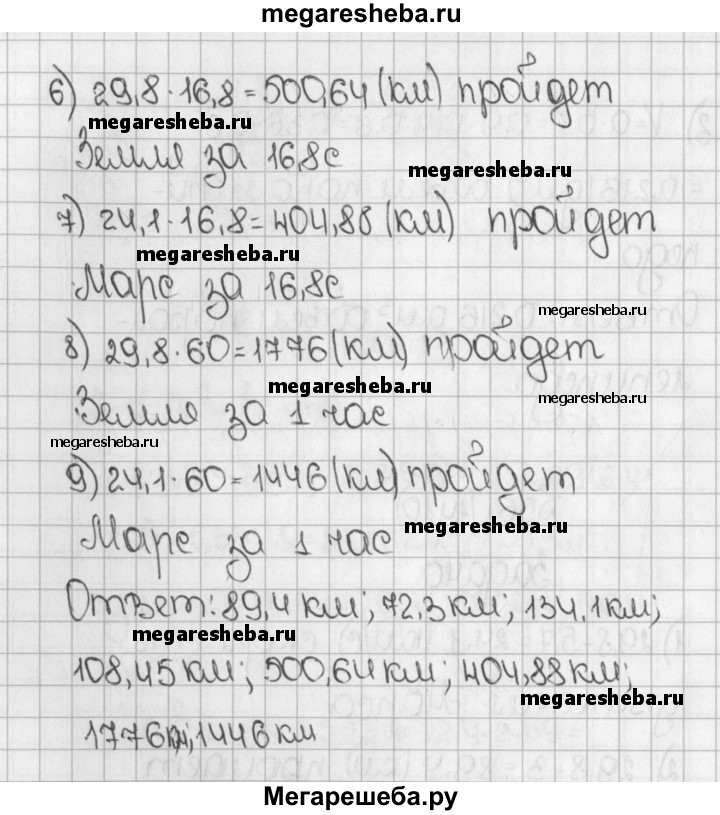 megaresheba.ru
6) 29,8·16,8=500,64 (км) пройдет
megaresheba.ru
Земля за 16,8с
megaresheba.ru
7) 24,1·16,8=404,88 (км) пройдет
megaresheba.ru
Марс за 16,8с
megaresheba.ru
8) 29,8·60=1776 (км) пройдет
megaresheba.ru
Земля за 1 час
megaresheba.ru
megaresheba.ru
9) 24,1·60=1446 (км) пройдет
megaresheba.ru
Марс за 1 час
Ответ: 89,4 км; 72,3 км; 134,1 км;
megaresheba.ru
108,45 км; 500,64 км; 404,88 км;
megaresheba.ru
1776 км; 1446 км
Мегарешеба.ру